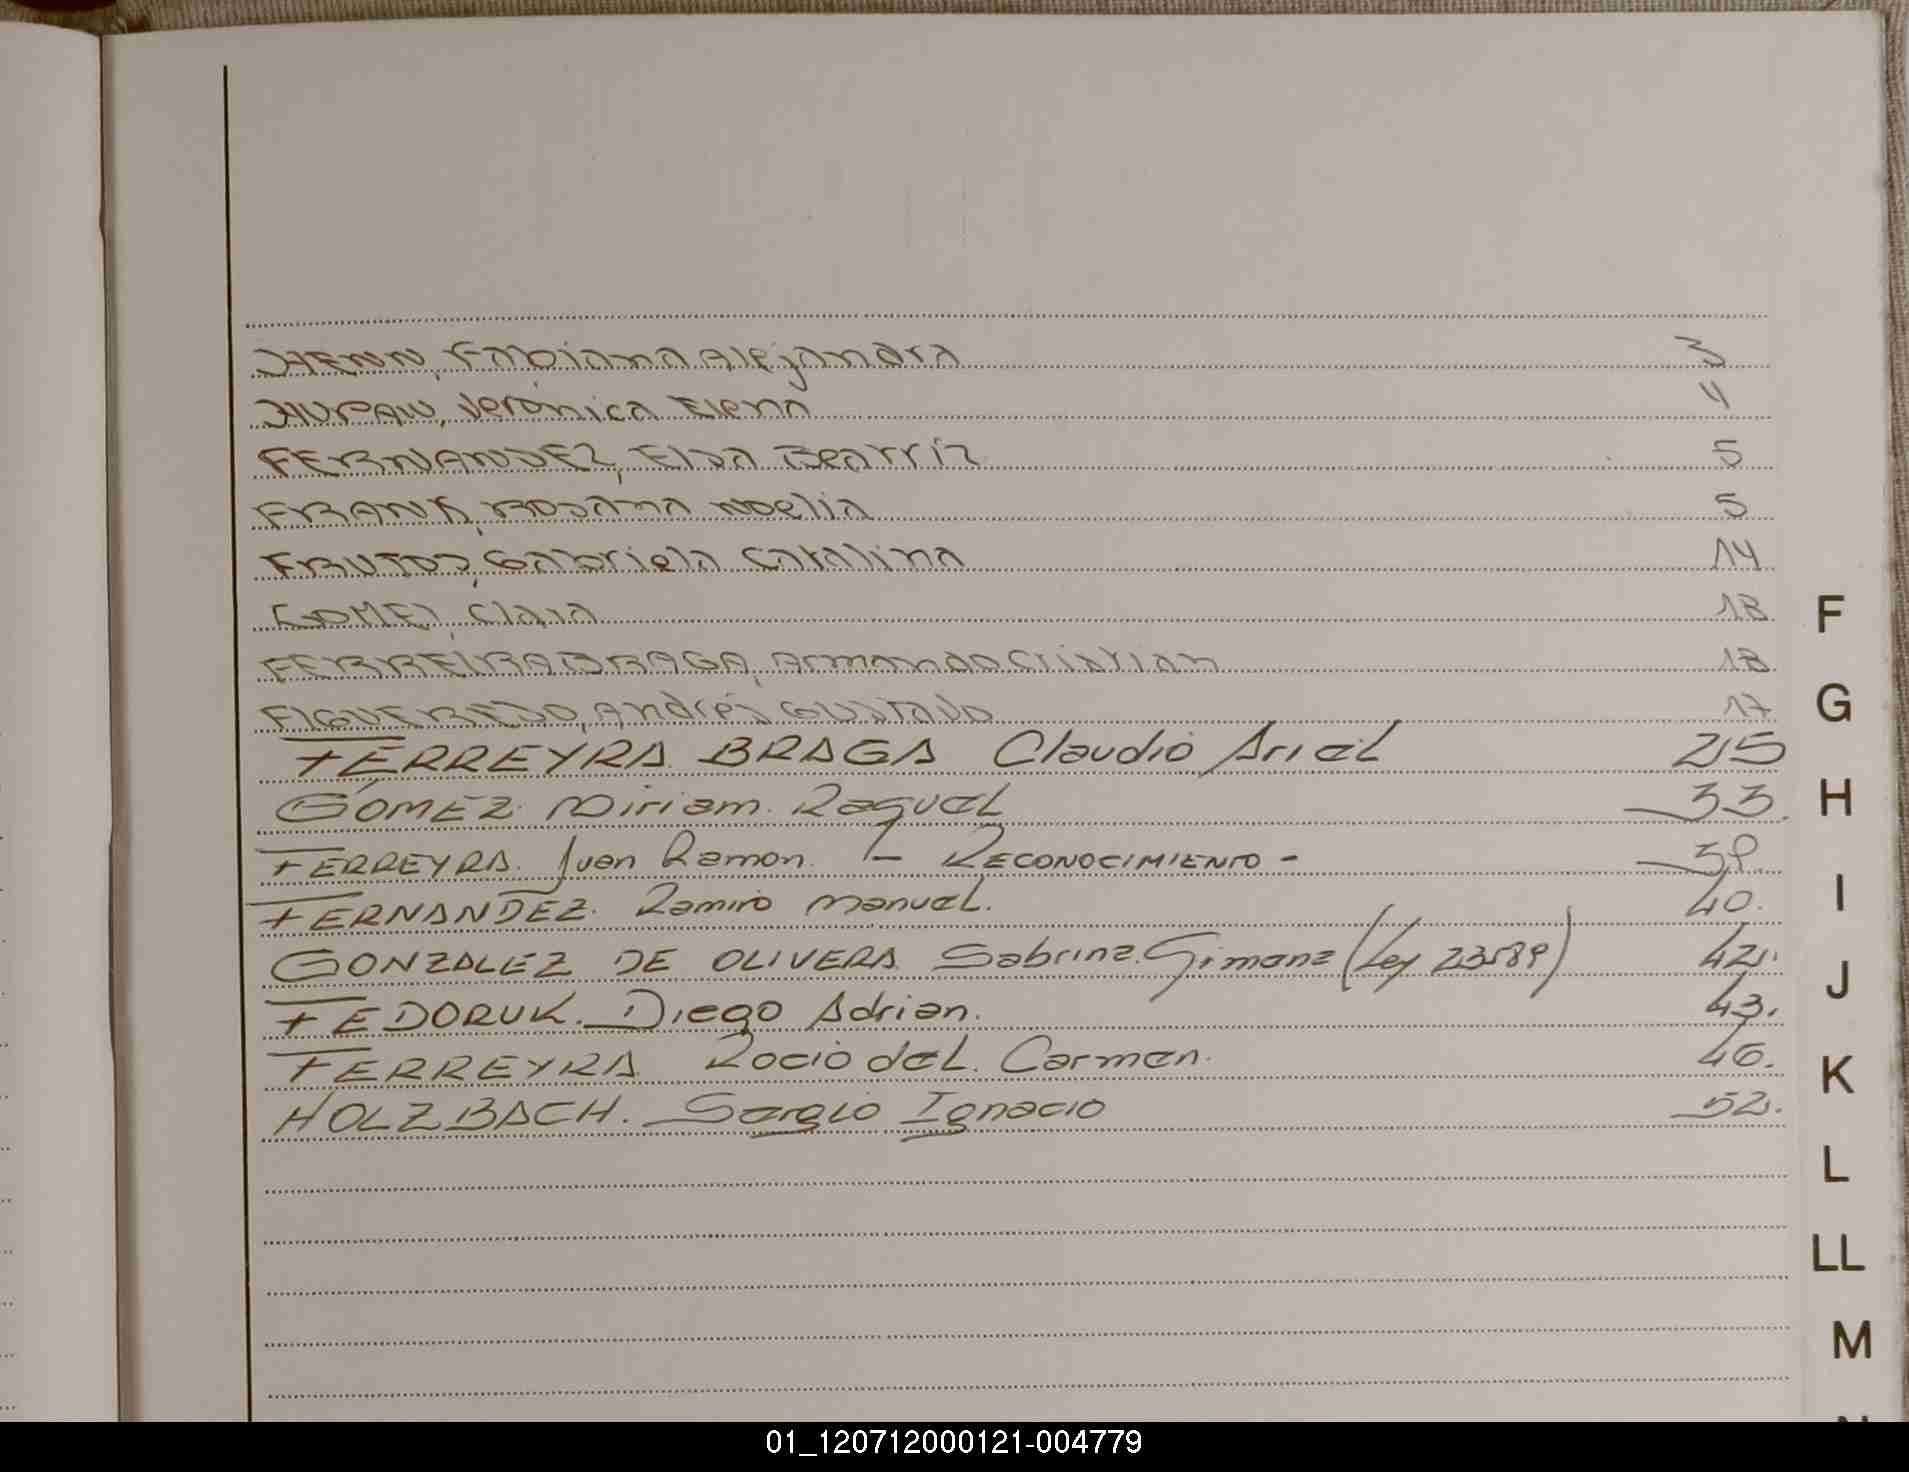 Fabiana Alejandra 3
Veronica Elena 4
FERNANDEZ, Elsa Beatriz 5
FRANK, Rosana Noelia 5
FRUTOS, Gabriela Catalina 14
GOMEZ, Clara 18
FERREIRA BRAGA, Armando Cristian 18
FIGUEREDO, Andrés Gustavo 17
FERREYRA BRAGA Claudio Ariel 25
GÓMEZ Miriam Raquel 33
FERREYRA. Juan Ramon. RECONOCIMIENTO - 39.
FERNANDEZ. Ramiro Manuel. 40.
GONZALEZ DE OLIVERA Sabrina Gimena (Ley 23589) 42.
FEDORUK. Diego Adrian. 43.
FERREYRA Rocio del Carmen. 46.
HOLZBACH. Sergio Ignacio 52.
F
G
H
I
J
K
L
LL
M
01_120712000121-004779